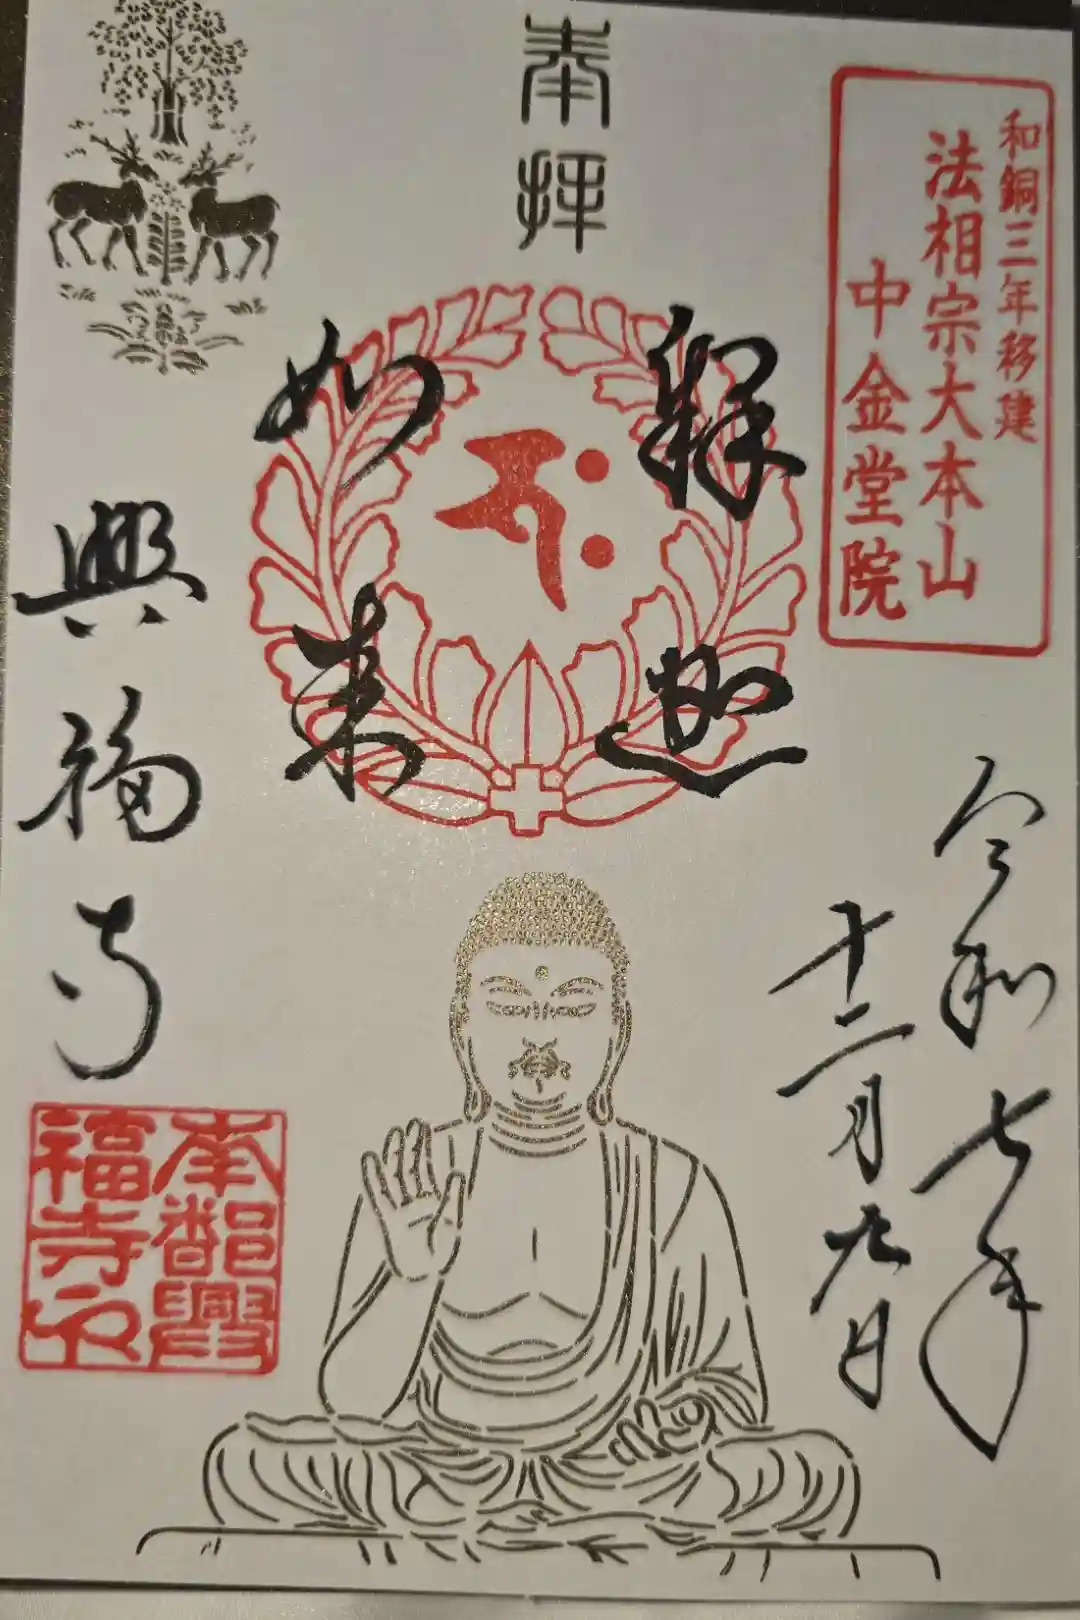 奉拝
和銅三年移建
法相宗大本山
中金堂院
釋迦
如来
令和七年
十二月九日
興福寺
南都興
福寺印